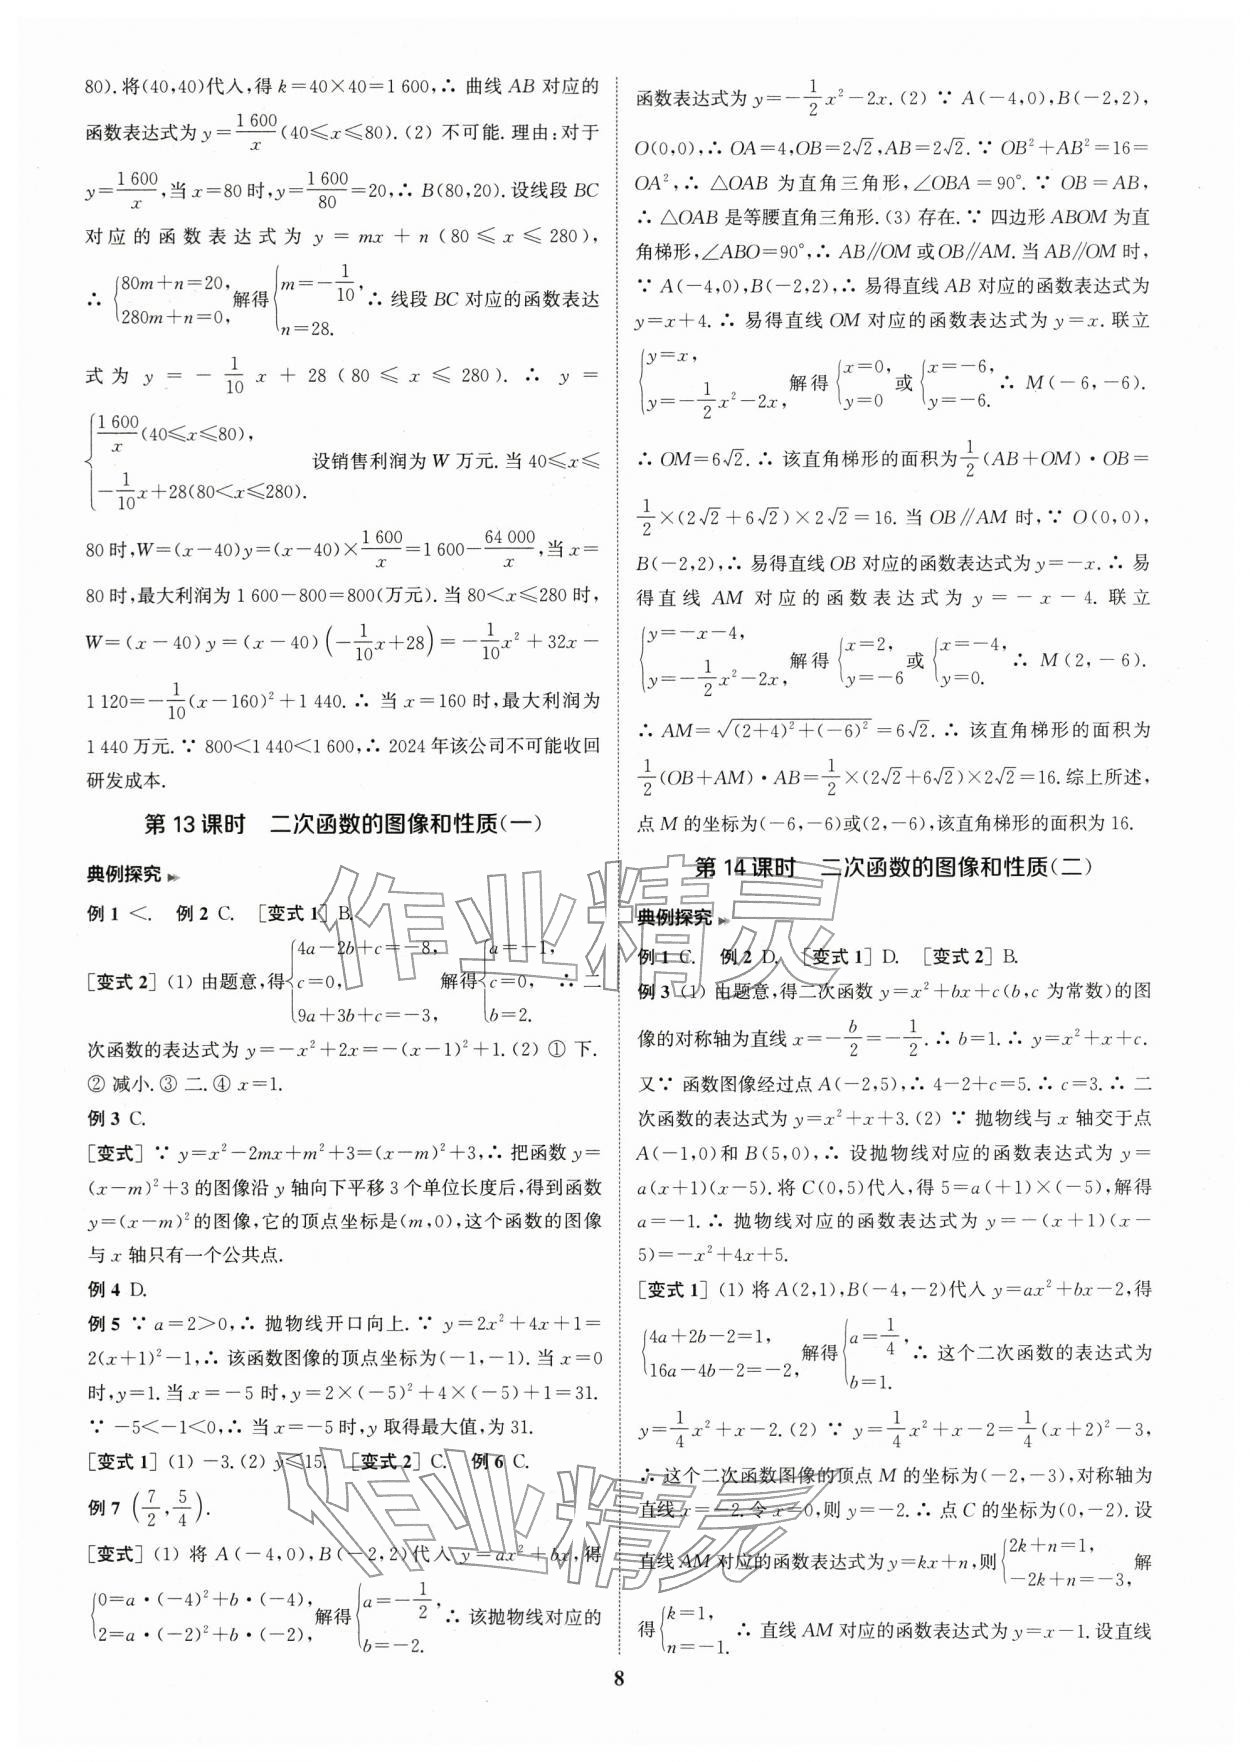 80).将(40,40)代入,得 k=40×40=1 600,∴ 曲线 AB 对应的
函数表达式为 y=\frac{1 600}{x}(40≤x≤80).(2) 不可能.理由:对于
y=\frac{1 600}{x},当 x=80 时,y=\frac{1 600}{80}=20,∴ B(80,20).设线段 BC
对应的函数表达式为 y=mx+n(80≤x≤280),
∴ {80m+n=20, 280m+n=0, 解得 {m=-\frac{1}{10}, n=28. ∴ 线段 BC 对应的函数表达
式为 y=-\frac{1}{10}x+28(80≤x≤280).∴ y=
{\frac{1 600}{x}(40≤x≤80), -\frac{1}{10}x+28(80<x≤280). 设销售利润为 W 万元.当 40≤x≤
80 时,W=(x-40)y=(x-40)×\frac{1 600}{x}=1 600-\frac{64 000}{x},当 x=
80 时,最大利润为 1 600-800=800(万元).当 80<x≤280 时,
W=(x-40)y=(x-40)(-\frac{1}{10}x+28)=-\frac{1}{10}x²+32x-
1 120=-\frac{1}{10}(x-160)²+1 440.∴ 当 x=160 时,最大利润为
1 440 万元.∵ 800<1 440<1 600,∴ 2024 年该公司不可能收回
研发成本.
第 13 课时 二次函数的图像和性质(一)
典例探究
例 1 <. 例 2 C. [变式 1] B.
[变式 2] (1) 由题意,得{4a-2b+c=-8, c=0, 9a+3b+c=-3, 解得{a=-1, c=0, b=2. ∴ 二
次函数的表达式为 y=-x²+2x=-(x-1)²+1.(2) ① 下.
② 减小.③ 二.④ x=1.
例 3 C.
[变式] ∵ y=x²-2mx+m²+3=(x-m)²+3,∴ 把函数 y=
(x-m)²+3 的图像沿 y 轴向下平移 3 个单位长度后,得到函数
y=(x-m)² 的图像,它的顶点坐标是(m,0),这个函数的图像
与 x 轴只有一个公共点.
例 4 D.
例 5 ∵ a=2>0,∴ 抛物线开口向上.∵ y=2x²+4x+1=
2(x+1)²-1,∴ 该函数图像的顶点坐标为(-1,-1).当 x=0
时,y=1.当 x=-5 时,y=2×(-5)²+4×(-5)+1=31.
∵ -5<-1<0,∴ 当 x=-5 时,y 取得最大值,为 31.
[变式 1] (1) -3.(2) y≤15. [变式 2] C. 例 6 C.
例 7 (\frac{7}{2},\frac{5}{4}).
[变式] (1) 将 A(-4,0),B(-2,2)代入 y=ax²+bx,得
{0=a·(-4)²+b·(-4), 2=a·(-2)²+b·(-2), 解得{a=-\frac{1}{2}, b=-2. ∴ 该抛物线对应的
函数表达式为 y=-\frac{1}{2}x²-2x.(2) ∵ A(-4,0),B(-2,2),
O(0,0),∴ OA=4,OB=2√2,AB=2√2.∵ OB²+AB²=16=
OA²,∴ △OAB 为直角三角形,∠OBA=90°.∵ OB=AB,
∴ △OAB 是等腰直角三角形.(3) 存在.∵ 四边形 ABOM 为直
角梯形,∠ABO=90°,∴ AB∥OM 或OB∥AM.当 AB∥OM 时,
∵ A(-4,0),B(-2,2),∴ 易得直线 AB 对应的函数表达式为
y=x+4.∴ 易得直线 OM 对应的函数表达式为 y=x.联立
{y=x, y=-\frac{1}{2}x²-2x, 解得{x=0, y=0 或{x=-6, y=-6. ∴ M(-6,-6).
∴ OM=6√2.∴ 该直角梯形的面积为\frac{1}{2}(AB+OM)·OB=
\frac{1}{2}×(2√2+6√2)×2√2=16.当 OB∥AM 时,∵ O(0,0),
B(-2,2),∴ 易得直线 OB 对应的函数表达式为 y=-x.∴ 易
得直线 AM 对应的函数表达式为 y=-x-4.联立
{y=-x-4, y=-\frac{1}{2}x²-2x, 解得{x=2, y=-6 或{x=-4, y=0. ∴ M(2,-6).
∴ AM=√((2+4)²+(-6)²)=6√2.∴ 该直角梯形的面积为
\frac{1}{2}(OB+AM)·AB=\frac{1}{2}×(2√2+6√2)×2√2=16.综上所述,
点 M 的坐标为(-6,-6)或(2,-6),该直角梯形的面积为 16.
第 14 课时 二次函数的图像和性质(二)
典例探究
例 1 C. 例 2 D. [变式 1] D. [变式 2] B.
例 3 (1) 由题意,得二次函数 y=x²+bx+c(b,c 为常数)的图
像的对称轴为直线 x=-\frac{b}{2}=-\frac{1}{2}.∴ b=1.∴ y=x²+x+c.
又∵ 函数图像经过点 A(-2,5),∴ 4-2+c=5.∴ c=3.∴ 二
次函数的表达式为 y=x²+x+3.(2) ∵ 抛物线与 x 轴交于点
A(-1,0)和 B(5,0),∴ 设抛物线对应的函数表达式为 y=
a(x+1)(x-5).将 C(0,5)代入,得 5=a(+1)×(-5),解得
a=-1.∴ 抛物线对应的函数表达式为 y=-(x+1)(x-
5)=-x²+4x+5.
[变式 1] (1) 将 A(2,1),B(-4,-2)代入 y=ax²+bx-2,得
{4a+2b-2=1, 16a-4b-2=-2, 解得{a=\frac{1}{4}, b=1. ∴ 这个二次函数的表达式为
y=\frac{1}{4}x²+x-2.(2) ∵ y=\frac{1}{4}x²+x-2=\frac{1}{4}(x+2)²-3,
∴ 这个二次函数图像的顶点 M 的坐标为(-2,-3),对称轴为
直线 x=-2.令 x=0,则 y=-2.∴ 点 C 的坐标为(0,-2).设
直线 AM 对应的函数表达式为 y=kx+n,则{2k+n=1, -2k+n=-3, 解
得{k=1, n=-1. ∴ 直线 AM 对应的函数表达式为 y=x-1.设直线
8
作业精灵
作业精灵